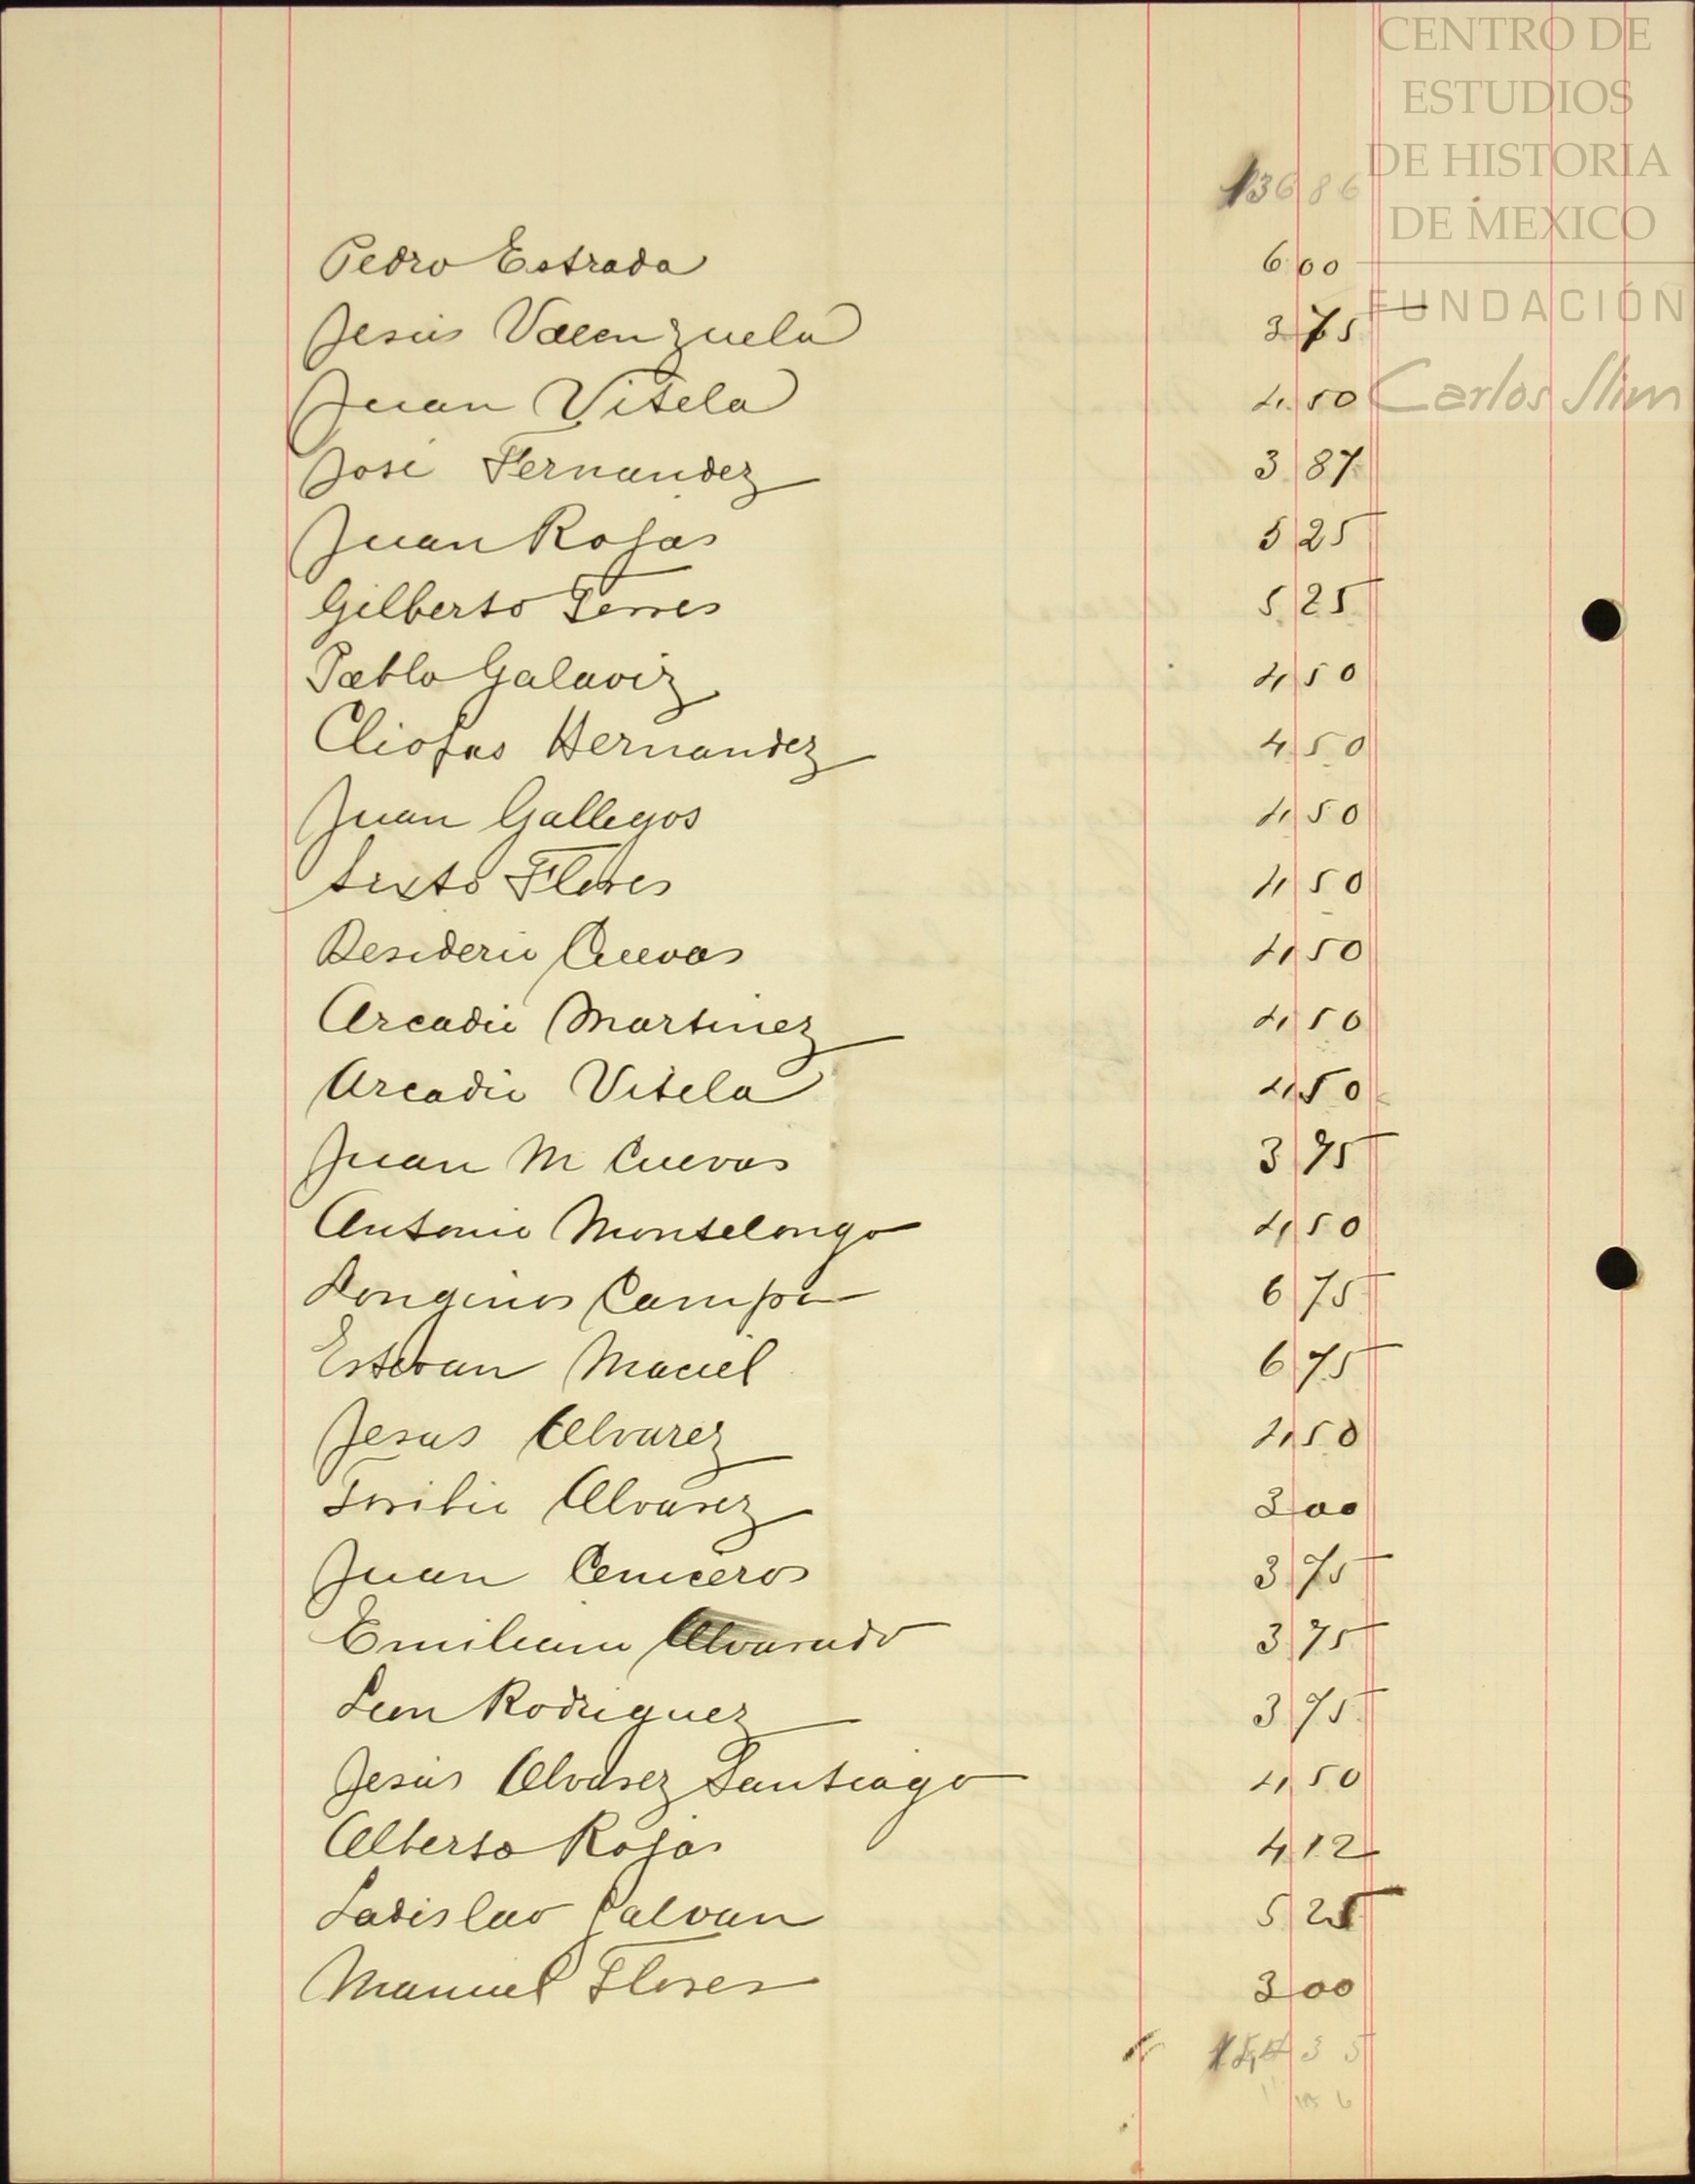 CENTRO DE
ESTUDIOS
DE HISTORIA
DE MEXICO
FUNDACIÓN
Carlos Slim
136 86
Pedro Estrada 6 00
Jesús Valenzuela 3 75
Juan Vitela 4 50
José Fernandez 3 87
Juan Rojas 5 25
Gilberto Torres 5 25
Pablo Galaviz 4 50
Cliofas Hernandez 4 50
Juan Gallegos 4 50
Sixto Flores 4 50
Desiderio Cuevas 4 50
Arcadio Martinez 4 50
Arcadio Vitela 4 50
Juan M Cuevas 3 75
Antonio Montelongo 4 50
Longinos Campa 6 75
Estevan Maciel 6 75
Jesus Alvarez 4 50
Toribio Alvarez 3 00
Juan Ceniceros 3 75
Emiliano Alvarado 3 75
Leon Rodriguez 3 75
Jesús Alvarez Santiago 4 50
Alberto Rojas 4 12
Ladislao Galvan 5 25
Manuel Flores 3 00